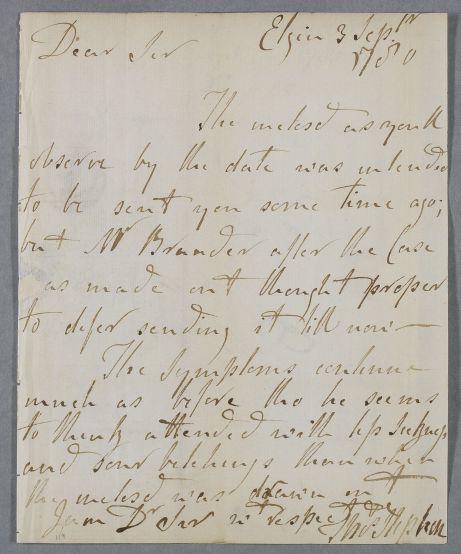 Dear Sir Elgin 3 Sepr
1780
The inclosd as you'll
observe by the date was intended
to be sent you some time ago;
but Mr Brander after the Case
was made out thought proper
to defer sending it till now —
The Symptoms continue
much as before tho he seems
to think attended with less Sickness
and sour belchings than when
the inclosd was drawn out
I am Dr Sir wt respect Thos Stephen